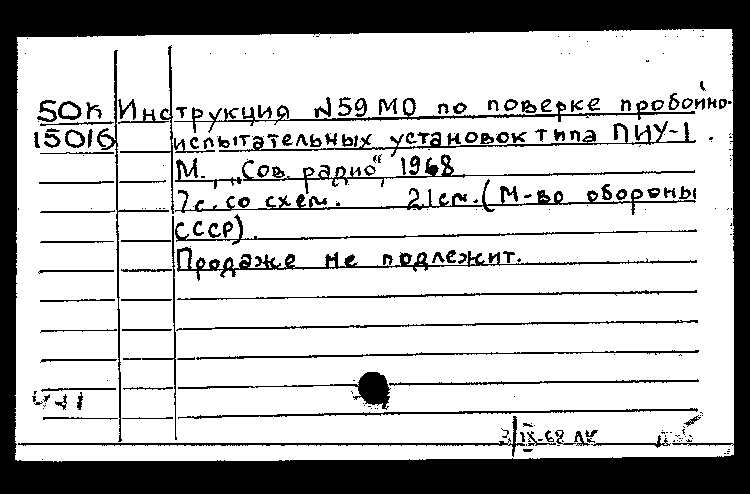 50к Инструкция N59 МО по поверке пробойно-
15016 испытательных установок типа ПИУ-1.
М., „Сов. радио", 1968
7с. со схем. 21см. (М-во обороны
СССР).
Продаже не подлежит.
3/IX-68 ЛК